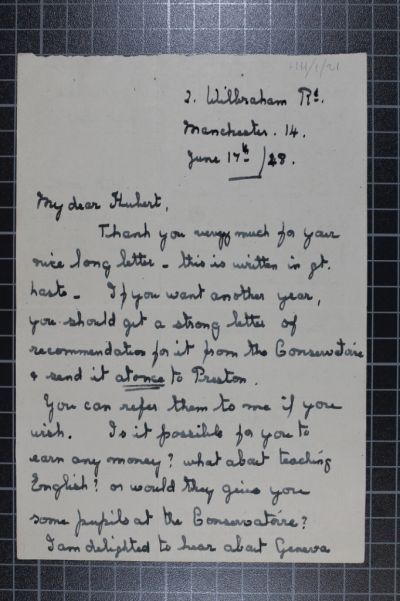 HH/1/21
2. Wilbraham Rd.
Manchester. 14.
June 17th /28.
My dear Hubert,
Thank you very much for your
nice long letter - this is written in gt.
haste - If you want another year,
you should get a strong letter of
recommendation for it from the Conservatoire
& send it at once to Preston.
You can refer them to me if you
wish. Is it possible for you to
earn any money? what about teaching
English? or would they give you
some pupils at the Conservatoire?
I am delighted to hear about Geneva